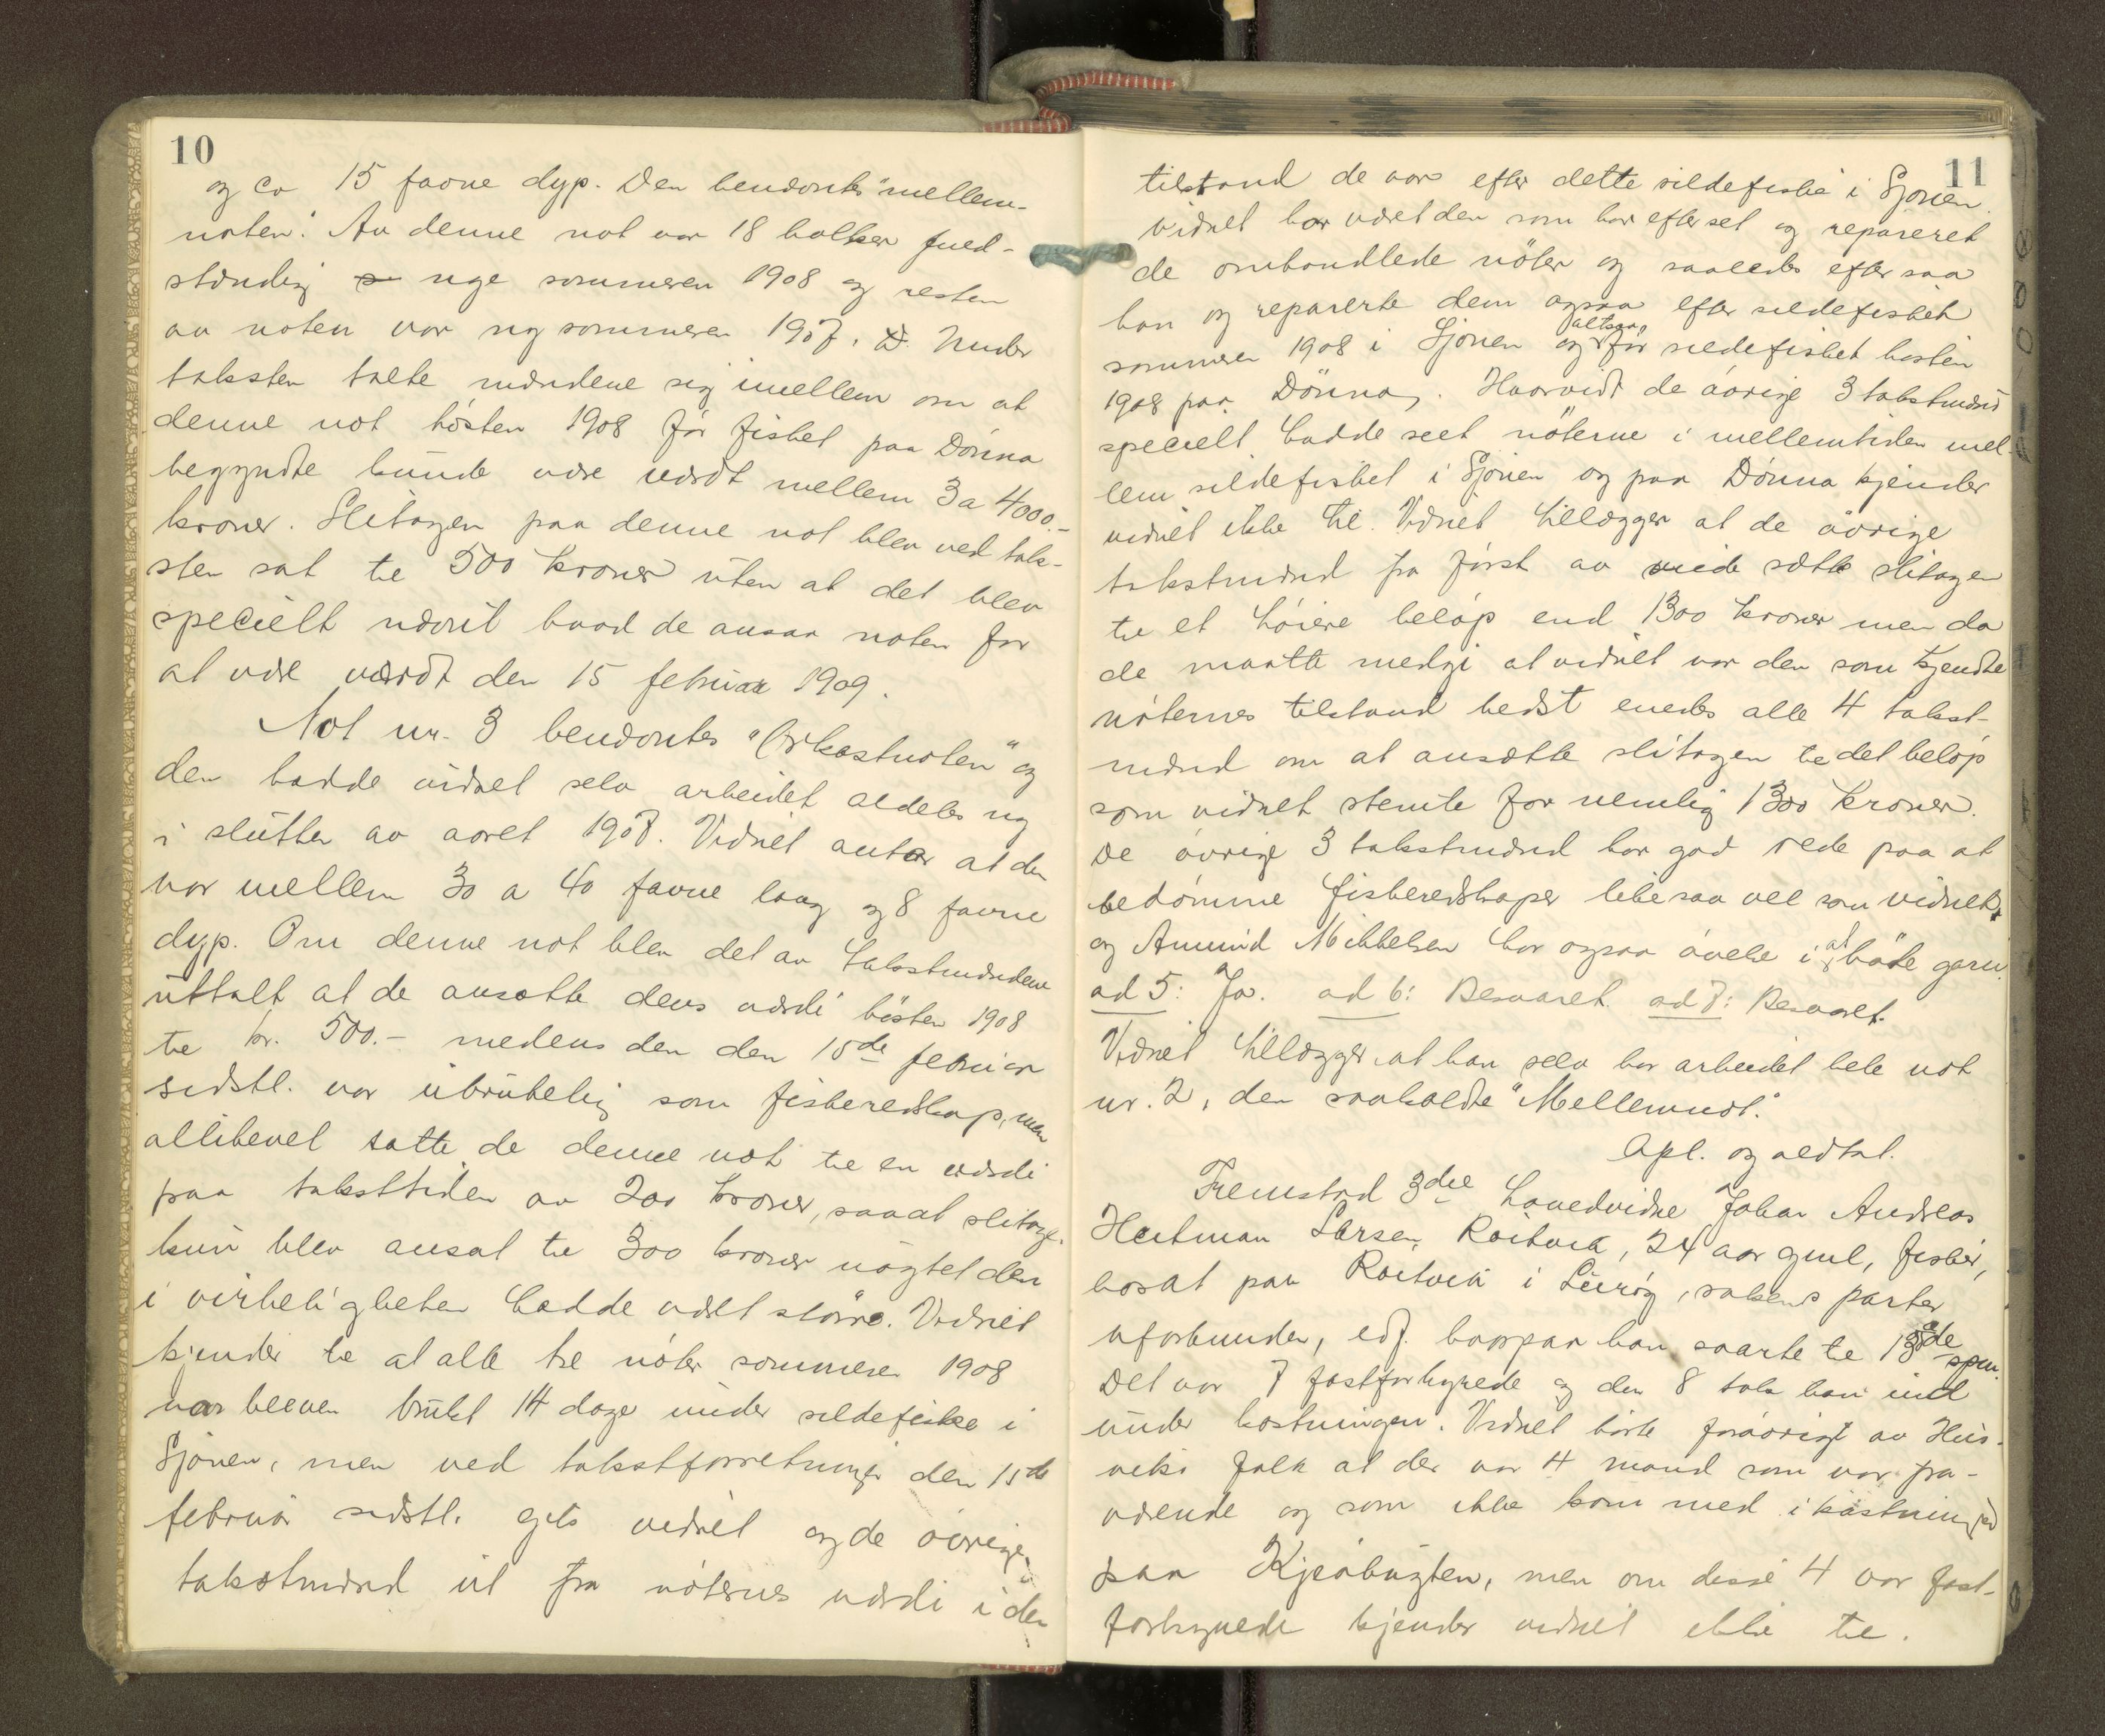 10
og ca 15 favne dyp. Den benævntes "mellem-
noten". Av denne not var 18 bolker fuld-
stændig nye sommeren 1908 og resten
av noten var ny sommeren 1907. Under
taksten talte mændene sig imellem om at
denne not høsten 1908 før fisket paa Dønna
begyndte kunde være værdt mellem 3 a 4000.-
kroner. Slitagen paa denne not blev ved tak-
sten sat til 500 kroner uten at det blev
specielt nævnt hvad de ansaa noten for
at være værdt den 15 februar 1909.
Not nr. 3 benævntes "Orkastnoten" og
den hadde vidnet selv arbeidet aldeles ny
i slutten av aaret 1907. Vidnet antar at den
var mellem 30 a 40 favne lang og 8 favne
dyp. Om denne not blev det av takstmændene
uttalt at de ansatte dens værdi høsten 1908
til kr. 500.- medens den den 15de februar
sidstl. var ubrukelig som fiskeredskap, men
allikevel satte de denne not til en værdi
paa taksttiden av 200 kroner, saaat slitagen
kun blev ansat til 300 kroner uagtet den
i virkeligheten hadde været større. Vidnet
kjender til at alle tre nøter sommeren 1908
var bleven brukt 14 dage under sildefiske i
Sjonen, men ved takstforretningen den 15de
februar sidstl. gik vidnet og de øvrige
takstmænd ut fra nøternes værdi i den
11
tilstand de var efter dette sildefiske i Sjonen.
Vidnet har været den som har efterset og repareret
de omhandlede nøter og saaledes efter saa
han og reparerte dem ogsaa efter sildefisket
sommeren 1908 i Sjonen og altsaa før sildefisket høsten
1908 paa Dønna. Hvorvidt de øvrige 3 takstmænd
specielt hadde seet nøterne i mellemtiden mel-
lem sildefisket i Sjonen og paa Dønna kjender
vidnet ikke til. Vidnet tillægger at de øvrige
takstmænd fra først av vilde sætte slitagen
til et høiere beløp end 1300 kroner men da
de maatte medgi at vidnet var den som kjendte
nøternes tilstand bedst enedes alle 4 takst-
mænd om at ansætte slitagen til det beløp
som vidnet stemte for nemlig 1300 kroner.
De øvrige 3 takstmænd har god rede paa at
bedømme fiskeredskaper like saa vel som vidnet,
og Amund Mikkelsen har ogsaa øvelse i at bøte garn.
ad 5: Ja. ad 6: Besvaret. ad 7: Besvaret.
Vidnet tillægger at han selv har arbeidet hele not
nr. 2, den saakaldte "Mellemnot".
Opl. og vedtat.
Fremstod 3die hovedvidne Johan Andreas
Heitman Larsen, Roitvik, 24 aar gml, fisker,
bosat paa Roitvik i Lurøy, sakens parter
uforbunden, edf. hvorpaa han svarte til 13de spm.
Det var 7 fastforhyrede og den 8 tok han ind
under kastningen. Vidnet hørte forøvrigt av Hus-
viks folk at der var 4 mand som var fra-
værende og som ikke kom med i kastningen
paa Kjeøbugten, men om disse 4 var fast-
forhyrede kjender vidnet ikke til.